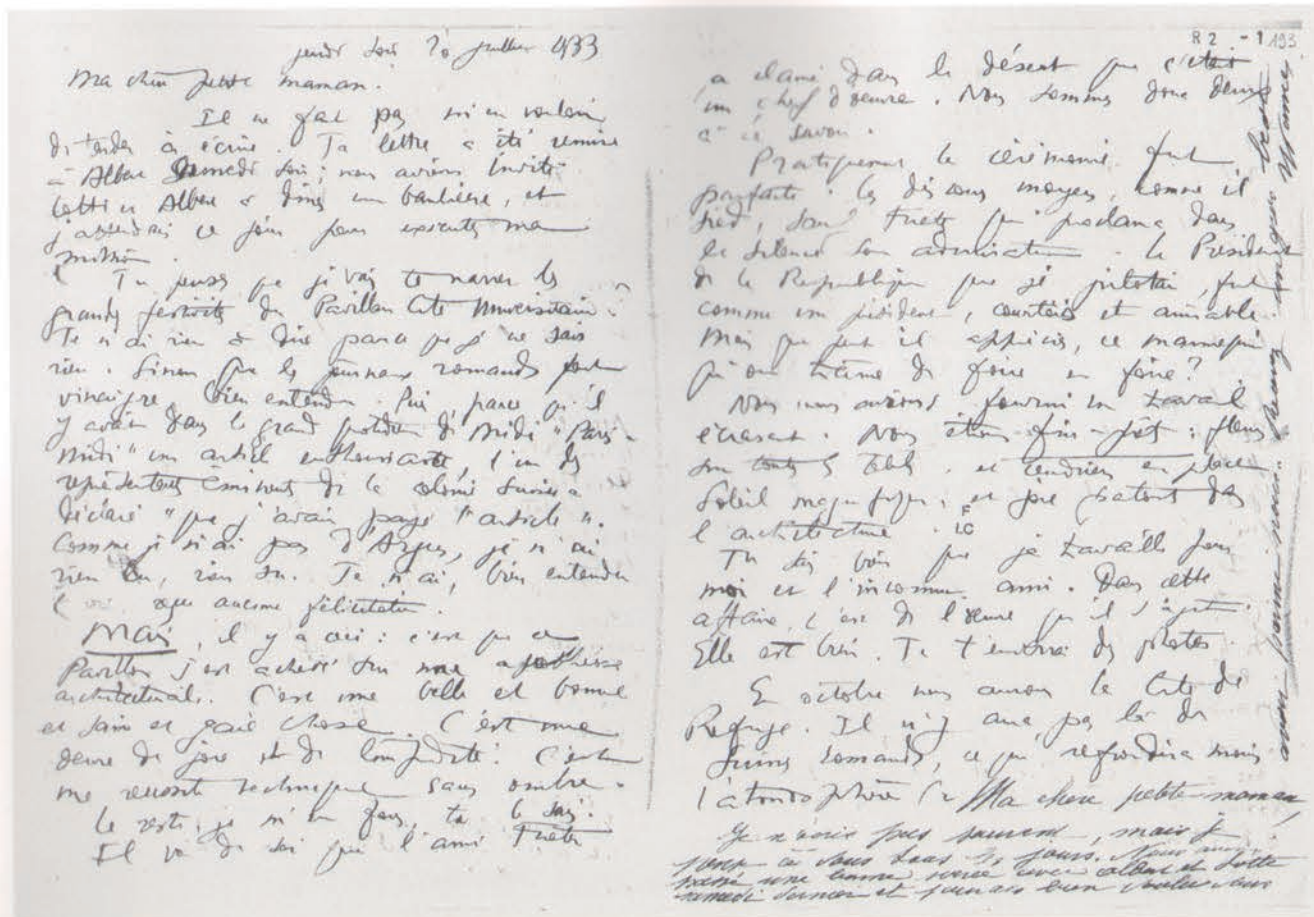 jeudi soir 20 juillet 1933
Ma chère petite maman.
Il ne faut pas m'en vouloir
de tarder à écrire. Ta lettre a été remise
à Albert Samedi soir; nous avions invité
Lotti et Albert à dîner en banlieue, et
j'attendais ce jour pour exécuter ma
mission.
Tu penses que je vais te narrer les
grandes festivités du Pavillon Cité Universitaire.
Je n'ai rien à dire parce que je ne sais
rien. Sinon que les journaux romands font
vinaigre, bien entendu. Puis, parce qu'il
y avait dans le grand quotidien de Midi "Paris-
Midi" un article enthousiaste, l'un des
représentants éminents de la colonie suisse a
déclaré "que j'avais payé l'article".
Comme je n'ai pas d'Argus, je n'ai
rien lu, rien su. Je n'ai, bien entendu
reçu aucune félicitation.
Mais, il y a ceci: c'est que ce
Pavillon s'est achevé sur une apothéose
architecturale. C'est une belle et bonne
et saine et gaie chose. C'est une
œuvre de joie et de limpidité. C'est
une réussite technique sans ombre.
Le reste, je m'en fous, tu le sais.
Il va de soi que l'ami Fueter
a clamé dans le désert que c'était
un chef d'œuvre. Nous sommes donc deux
à le savoir.
Pratiquement la cérémonie fut
parfaite. les discours moyens, comme il
sied, sauf Fueter qui proclama dans
le silence son admiration. Le Président
de la République que je pilotai, fut
comme un président, courtois et aimable.
Mais que peut-il apprécier, ce mannequin
qu'on trime de foire en foire?
Nous avions fourni un travail
écrasant. Nous étions fin-prêts: fleurs
sur toutes les tables, et cendriers en place.
Soleil magnifique, et joie partout dans
l'architecture.
F
LC
Tu sais bien que je travaille pour
moi et l'inconnu ami. Dans cette
affaire, c'est de l'œuvre qu'il s'agit.
Elle est bien. Je t'enverrai des photos.
En octobre nous aurons la Cité de
Refuge. Il n'y aura pas là de
Suisses romands, ce qui refroidira moins
l'atmosphère
Ma chère petite maman,
Je n'écris pas souvent, mais je
pense à vous tous les jours. Nous avons
passé une bonne soirée avec Albert et Lotte
samedi dernier et j'aurais bien voulu vous
avoir parmi nous.
R2 - 1 193